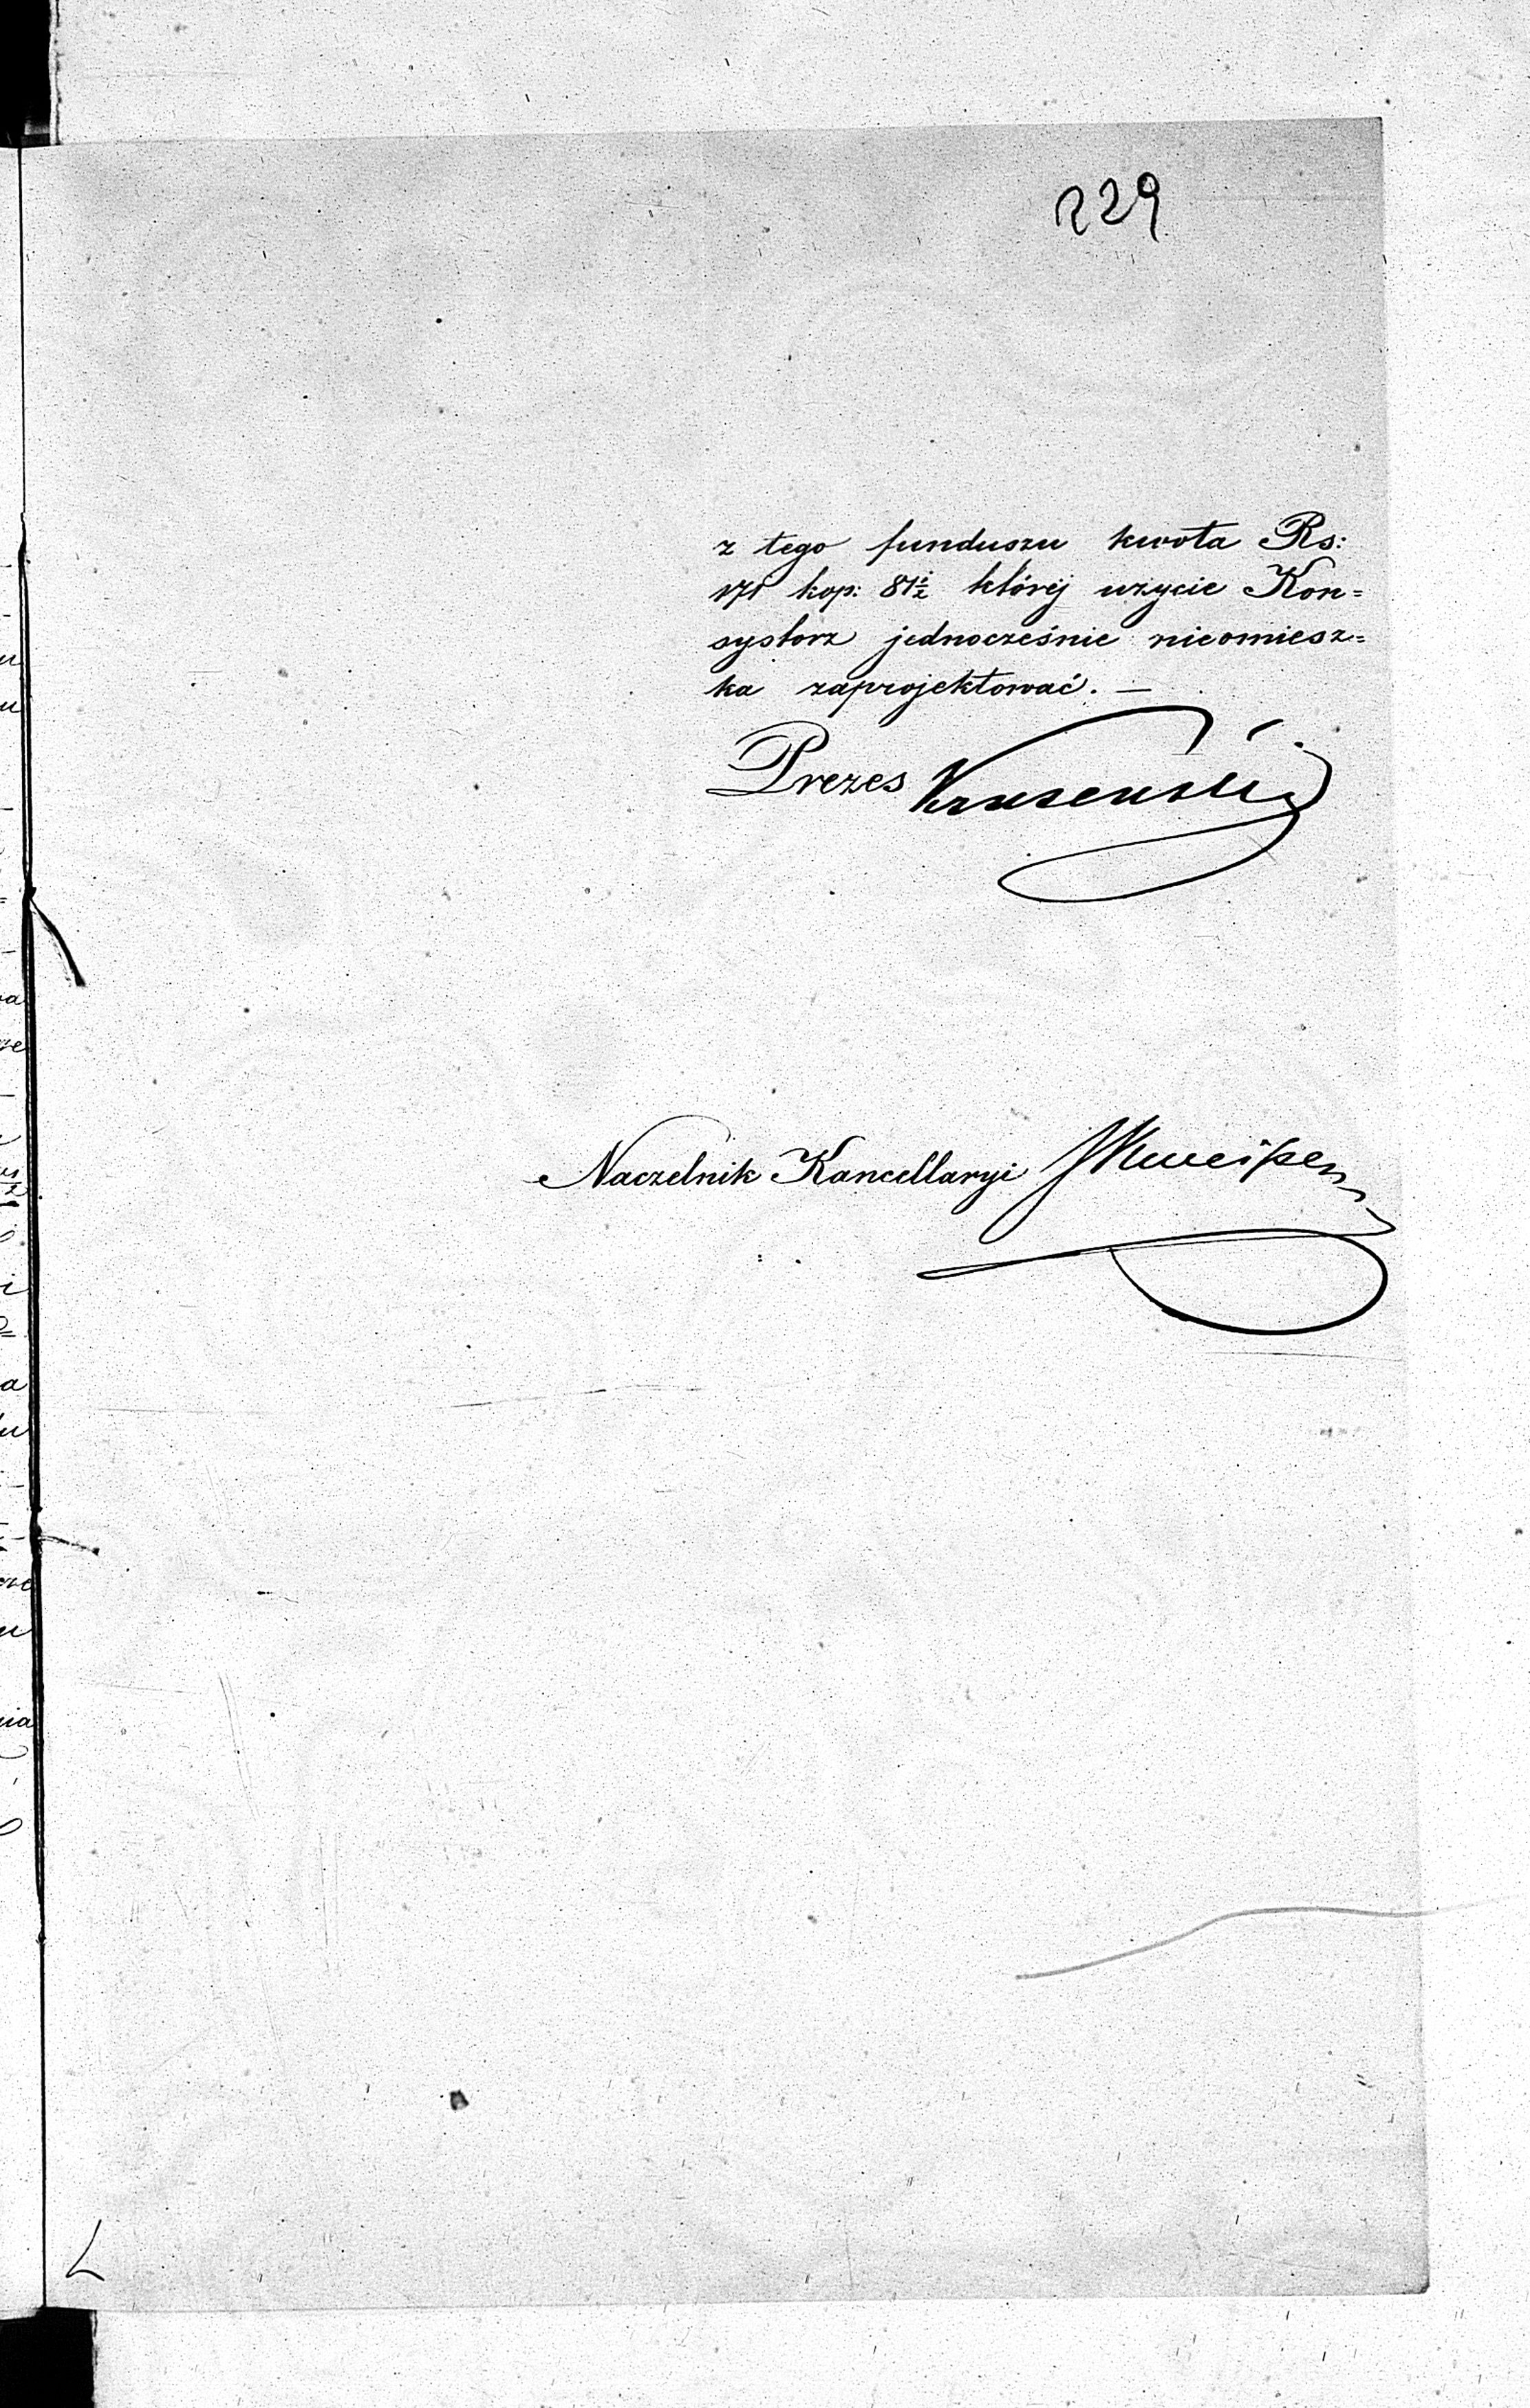 229
z tego funduszu kwota Rs:
171 kop: 81½ której użycie Kon=
systorz jednocześnie nieomiesz=
ka zaprojektować. —
Prezes
Naczelnik Kancellaryi